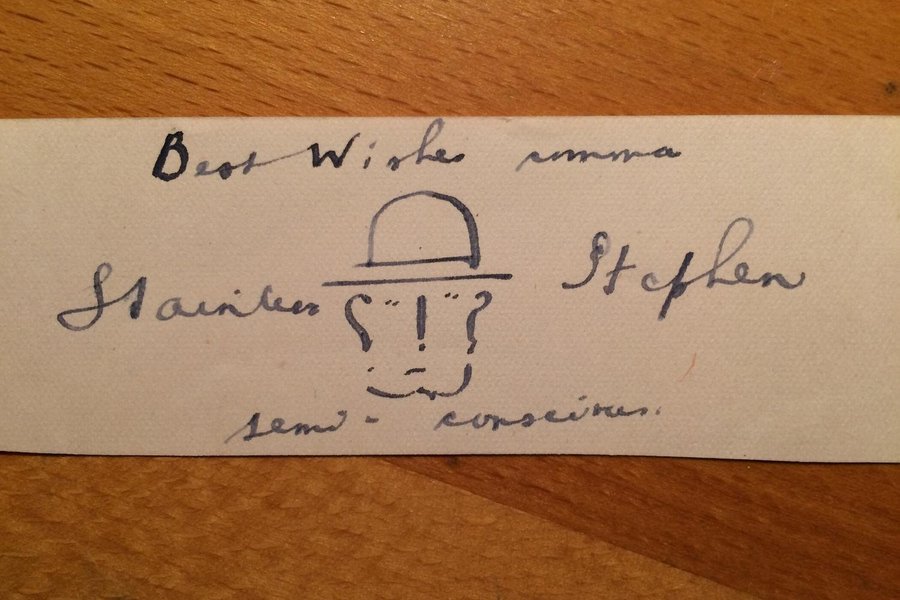 Best Wishes comma
Stainless Stephen
semi-conscious.